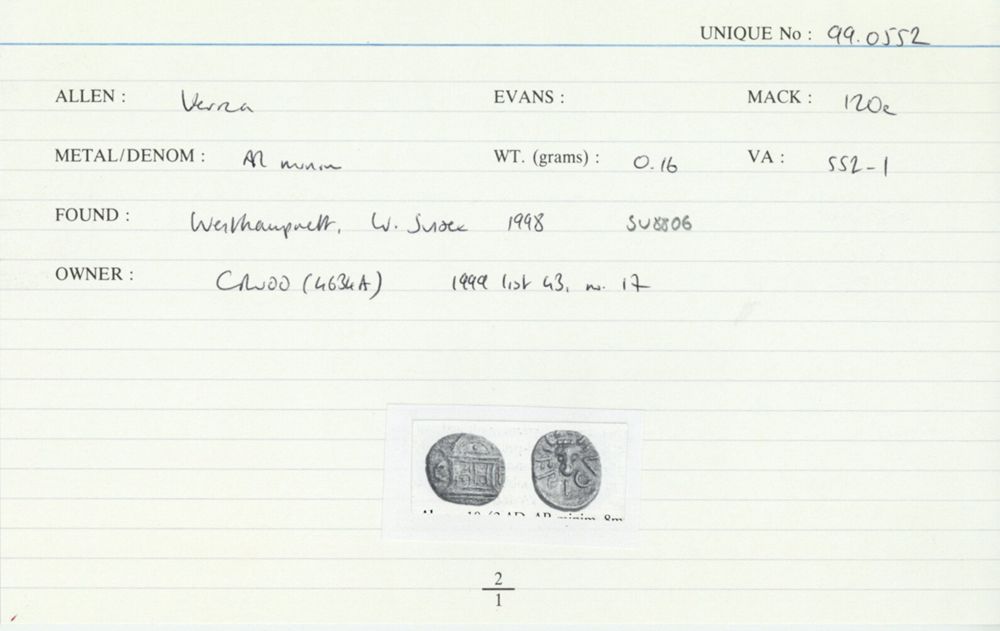 UNIQUE No : 99.0552
ALLEN : Verica EVANS : MACK : 120c
METAL/DENOM : AR minim WT. (grams) : 0.16 VA : 552-1
FOUND : Westhampnett, W. Sussex 1998 SU8806
OWNER : (4634A) 1999 list 43, no. 17
AR minim
2
1